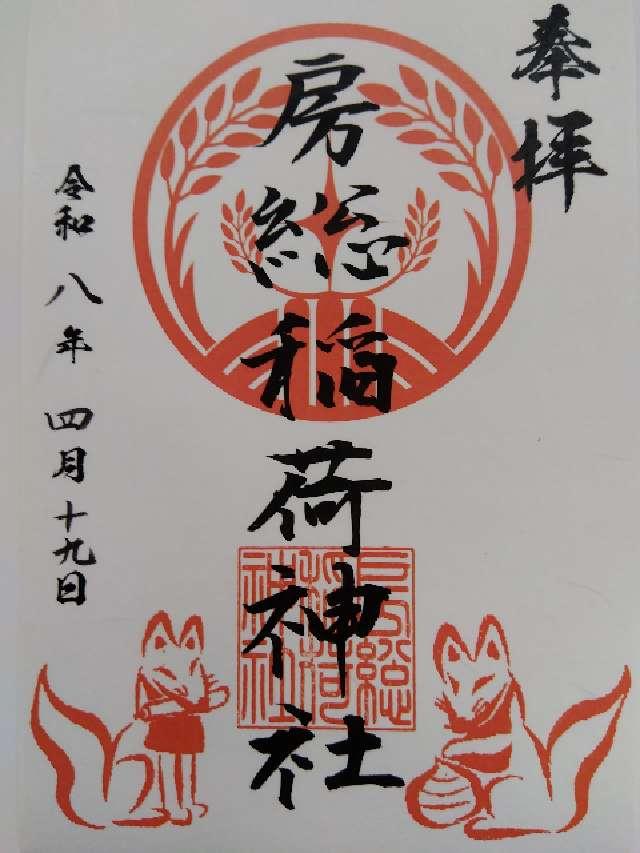 奉拝
房総稲荷神社
房総稲荷神社
令和八年四月十九日